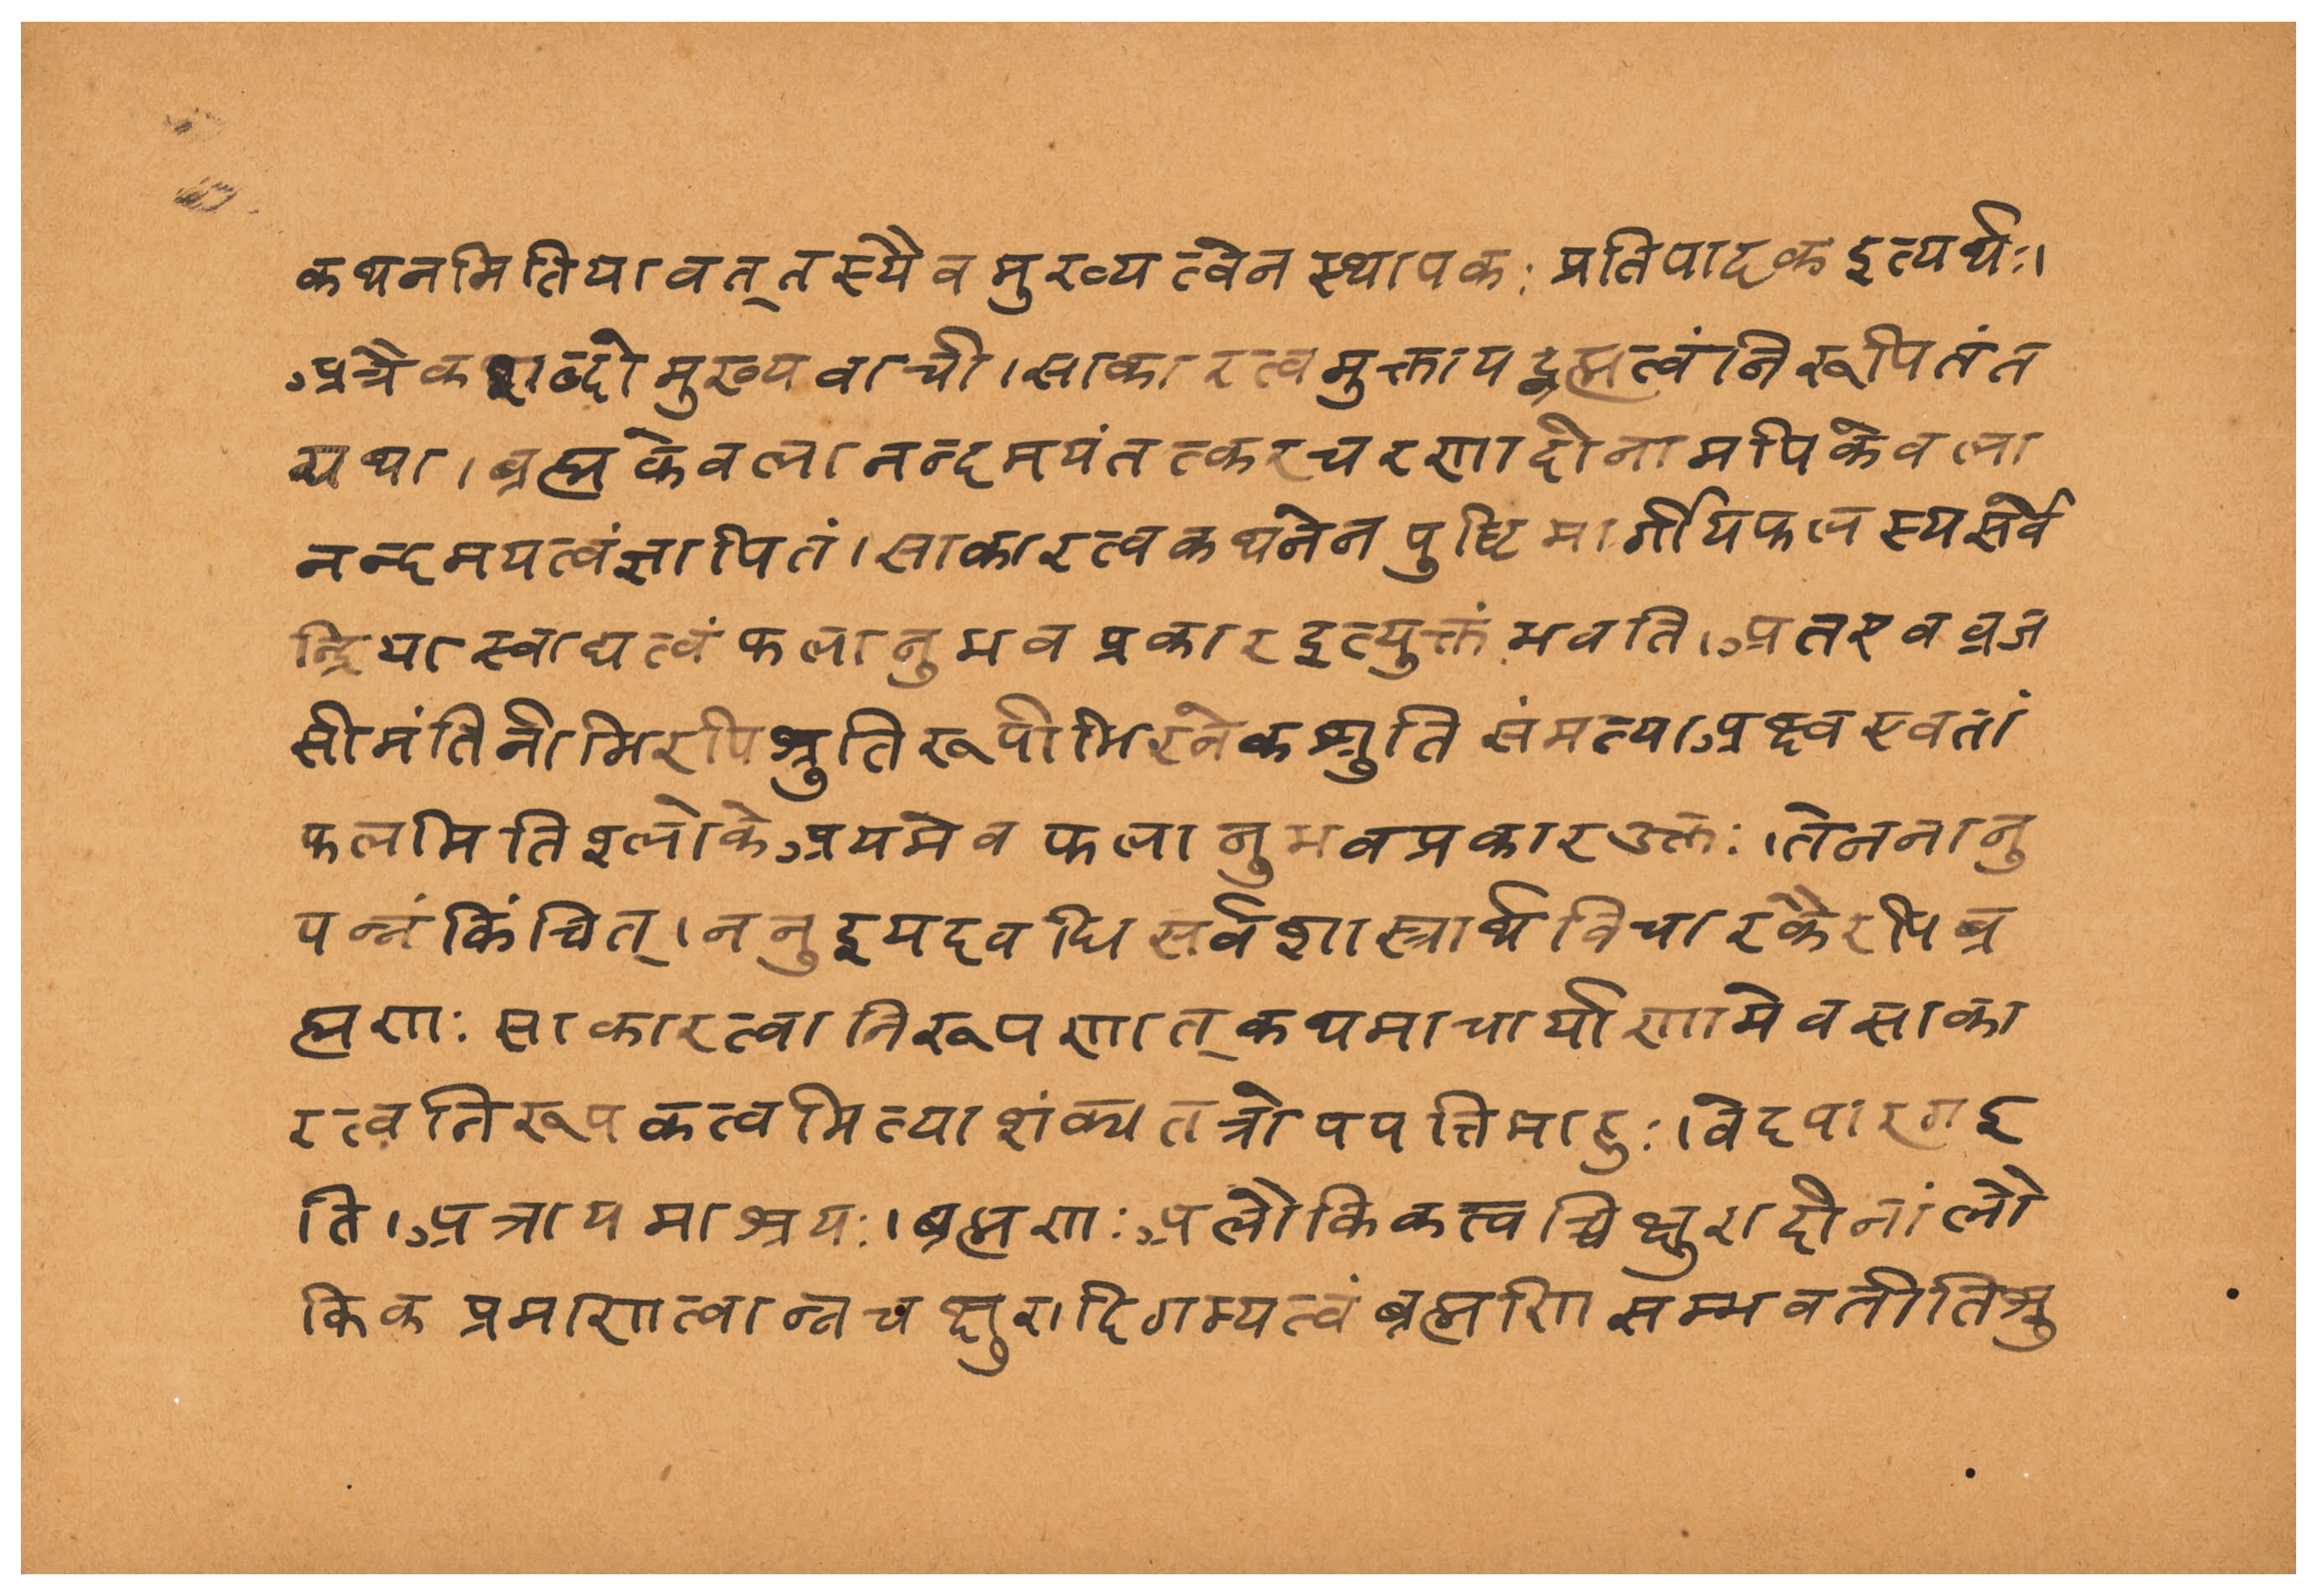 कथनमितियावत् तस्यैव मुख्यत्वेन स्थापकः प्रतिपादक इत्यर्थः।
अत्रैकशब्दो मुख्यवाची।साकारत्वमुक्त्वा यद्ब्रह्मत्वंनिरूपितंत
यथा।ब्रह्मकेवलानन्दमयंतत्करचरणादीनामपिकेवला
नन्दमयत्वंज्ञापितं।साकारत्वकथनेन पुष्टिमार्गीयफलस्यसर्वे
न्द्रियास्वाद्यत्वं फलानुभव प्रकार इत्युक्तं भवति।अतएव व्रज
सीमंतिनीभिरपिश्रुतिरूपाभिरनेकश्रुति संमत्याअक्ष्वएवतां
फलमितिश्लोकेअयमेव फलानुभवप्रकारउक्तः।तेननानु
पन्नं किंचित्।ननु इयदवधि सर्वशास्त्रार्थविचारकैरपि ब्र
ह्मणः साकारत्वानिरूपणात् कथमाचार्याणामेवसाका
रत्वनिरूपकत्वमित्याशंक्य तत्रोपपत्तिमाहुः।वेदपारगइ
ति।अत्रायमाश्रयः।ब्रह्मणःअलौकिकत्वच्चिक्षुरादीनांलौ
किक प्रमाणत्वान्नचक्षुरादिगम्यत्वं ब्रह्मणि सम्भवतीतिश्रु